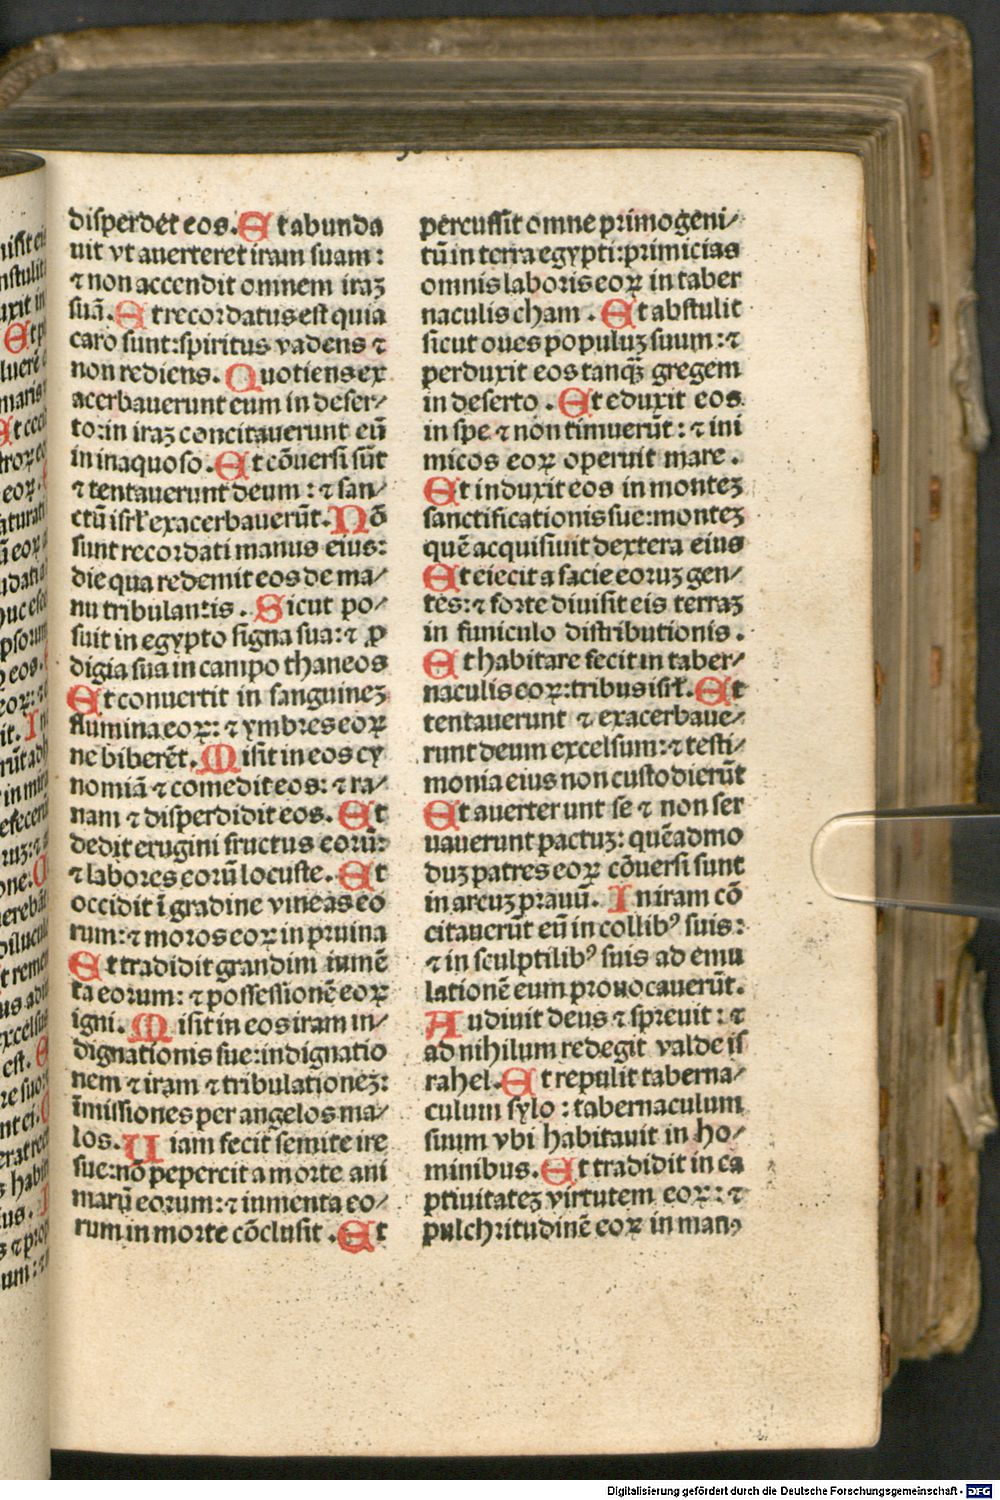 disperdet eos. Et abunda
uit vt auerteret iram suam:
⁊ non accendit omnem iraꝫ
suā. Et recordatus est quia
caro sunt: spiritus vadens ⁊
non rediens. Quotiens ex
acerbauerunt eum in deser⸗
to: in iraꝫ concitauerunt eū
in inaquoso. Et cōuersi sūt
⁊ tentauerunt deum: ⁊ san⸗
ctū isrł exacerbauerūt. Nō
sunt recordati manus eius:
die qua redemit eos de ma⸗
nu tribulantis. Sicut po⸗
suit in egypto signa sua: ⁊ ꝓ
digia sua in campo thaneos
Et conuertit in sanguineꝫ
flumina eoꝝ: ⁊ ymbres eoꝝ
ne biberēt. Misit in eos cy
nomiā ⁊ comedit eos: ⁊ ra⸗
nam ⁊ disperdidit eos. Et
dedit erugini fructus eorū:
⁊ labores eorū locuste. Et
occidit ī gradine vineas eo
rum: ⁊ moros eoꝝ in pruina
Et tradidit grandini iumē
ta eorum: ⁊ possessionē eoꝝ
igni. Misit in eos iram in⸗
dignationis sue: indignatio
nem ⁊ iram ⁊ tribulationeꝫ:
īmissiones per angelos ma⸗
los. Uiam fecit semite ire
sue: nō pepercit a morte ani
marū eorum: ⁊ iumenta eo⸗
rum in morte cōclusit. Et
percussit omne primogeni⸗
tū in terra egypti: primicias
omnis laboris eoꝝ in taber
naculis cham. Et abstulit
sicut oues populuꝫ suum: ⁊
perduxit eos tanq̄ȝ gregem
in deserto. Et eduxit eos
in spe ⁊ non timuerūt: ⁊ ini
micos eoꝝ operuit mare.
Et induxit eos in monteꝫ
sanctificationis sue: monteꝫ
quē acquisiuit dextera eius
Et eiecit a facie eoruꝫ gen⸗
tes: ⁊ forte diuisit eis terraꝫ
in funiculo distributionis.
Et habitare fecit in taber⸗
naculis eoꝝ: tribus isrł. Et
tentauerunt ⁊ exacerbaue⸗
runt deum excelsum: ⁊ testi⸗
monia eius non custodierūt
Et auerterunt se ⁊ non ser
uauerunt pactuꝫ: quēadmo
duꝫ patres eoꝝ cōuersi sunt
in arcuꝫ prauū. In iram cō
citauerūt eū in collibꝰ suis:
⁊ in sculptilibꝰ suis ad emu
lationē eum prouocauerūt.
Audiuit deus ⁊ spreuit: ⁊
ad nihilum redegit valde is
rahel. Et repulit taberna⸗
culum sylo: tabernaculum
suum vbi habitauit in ho⸗
minibus. Et tradidit in ca
ptiuitateꝫ virtutem eoꝝ: ⁊
pulchritudinē eoꝝ in manꝰ
Digitalisierung gefördert durch die Deutsche Forschungsgemeinschaft - DFG